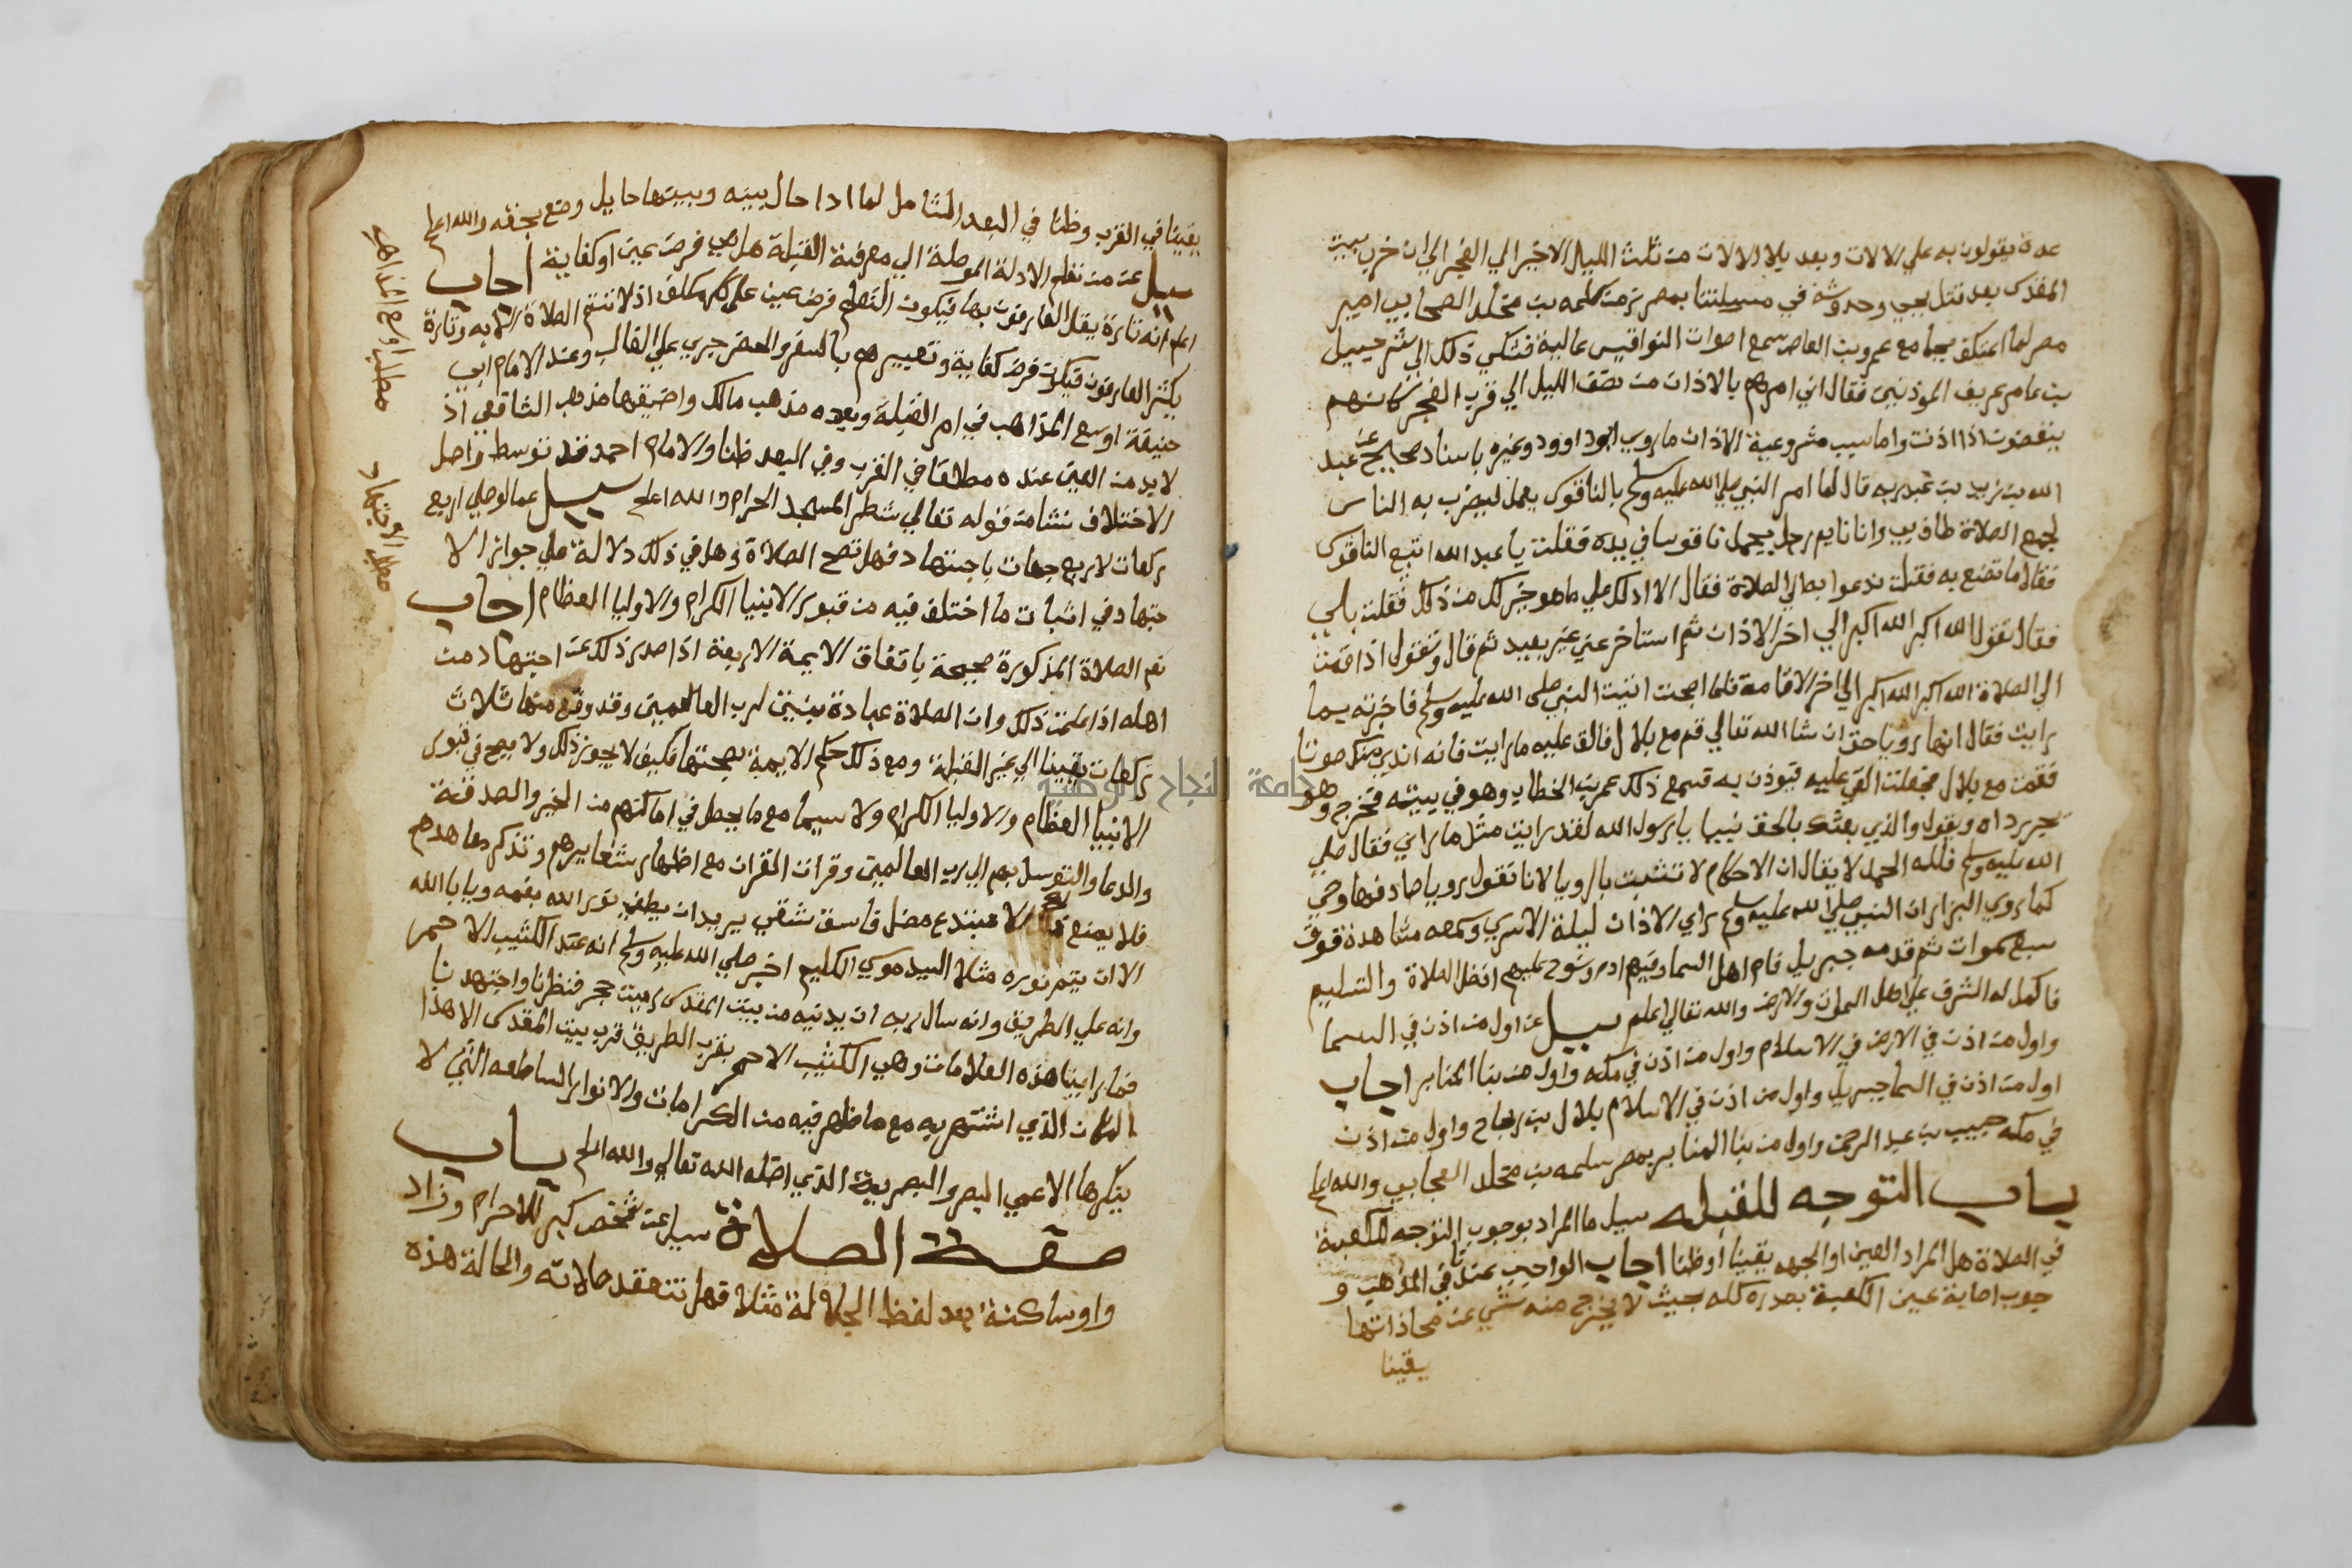 عدة يقولون به علي الالات وبعد بلا الالات من ثلث الليل الاخير الي الفجر الي ان خرب بيت
المقدس بعد قتل يحيي وحدوثه في مسيلتنا بمصر زمن مسلمه بن مخلد الصحابي امير
مصر لما اعتكف بجامع عمرو بن العاص سمع اصوات النواقيس عالية فشكي ذلك الي شرحبيل
بن عامر عريف الموذنين فقال اني امرهم بالاذان من نصف الليل الي قرب الفجر فانهم
ينقضون اذا اذنت واما سبب مشروعية الاذان ما روي ابوداوود وغيره باسناد صحيح عن عبد
الله بن زيد بن عبد ربه قال لما امر النبي صلي الله عليه وسلم بالناقوس يعمل ليضرب به الناس
لجمع الصلاة طاف بي وانا نايم رجل يحمل ناقوسا في يده فقلت يا عبد الله اتبع الناقوس
فقال ما تصنع به فقلت ندعوا به الي الصلاة فقال الا ادلك علي ما هو خير لك من ذلك فقلت بلي
فقال تقول الله اكبر الله اكبر الي اخر الاذان ثم استاخر عني غير بعيد ثم قال وتقول اذا قمت
الي الصلاة الله اكبر الله اكبر الي اخر الاقامة فلما اصبحت اتيت النبي صلي الله عليه وسلم فاخبرته بما
رايت فقال انها رويا حق ان شا الله تعالي قم مع بلال فالق عليه ما رايت فانه اندي منك صوتا
فقمت مع بلال فجعلت القي عليه فيوذن به فسمع ذلك عمر بن الخطاب وهو في بيته فخرج وهو
يجر رداه ويقول والذي بعثك بالحق نبيا يا رسول الله لقد رايت مثل ما راي فقال صلي
الله عليه وسلم فلله الحمد لا يقال ان الاحكام لا تثبت بالرويا لانا نقول رويا صادفها وحي
كما روي البزار ان النبي صلي الله عليه وسلم راي الاذان ليلة الاسري وسمعه مشاهدة فوق
سبع سموات ثم قدمه جبريل فام اهل السما وفيهم ادم ونوح عليهم افضل الصلاة والتسليم
فاكمل له الشرف علي اهل السموات والارض والله تعالي اعلم سيل عن اول من اذن في السما
واول من اذن في الارض في الاسلام واول من اذن في مكه واول من بنا المنابر اجاب
اول من اذن في السما جبريل واول من اذن في الاسلام بلال بن رباح واول من اذن
في مكه حبيب بن عبد الرحمن واول من بنا المنابر بمصر سلمه بن مخلد الصحابي والله اعلم
باب التوجه للقبله سيل ما المراد بوجوب التوجه للكعبة
في الصلاة هل المراد العين او الجهه يقينا او ظنا اجاب الواجب عندنا في المذهب و
جوب اصابة عين الكعبة بصدره كله بحيث لا يخرج منه شي عن محاذاتها
يقينا
يقينا في القرب وظنا في البعد المتامل لما اذا حال بينه وبينها حايل وضع بحقه والله اعلم
سيل عن من تعلم الادلة الموصلة الي معرفة القبلة هل هي فرض عين او كفاية اجاب
اعلم انه تارة يقل العارفون بها فيكون التعلم فرض عين علي كل مكلف اذ لا تتم الصلاة الا به وتارة
يكثر العارفون فيكون فرض كفاية وتعبيرهم بالسفر والحضر جري علي الغالب وعند الامام ابي
حنيفة اوسع المذاهب في امر القبلة وبعده مذهب مالك واضيقها مذهب الشافعي اذ
لا بد من العين عنده مطلقا في القرب وفي البعد ظنا والامام احمد قد توسط واصل
الاختلاف نشا من قوله تعالي شطر المسجد الحرام والله اعلم سيل عما لو صلي اربع
ركعات لاربع جهات باجتهاد فهل تصح الصلاة وهل في ذلك دلالة علي جواز الا
جتهاد في اثبات ما اختلف فيه من قبور الانبيا الكرام والاوليا العظام اجاب
نعم الصلاة المذكورة صحيحة باتفاق الايمة الاربعة اذا صدر ذلك عن اجتهاد من
اهله اذا علمت ذلك وان الصلاة عبادة بيقين لرب العالمين وقد وقع منها ثلاث
ركعات يقينا الي غير القبلة ومع ذلك حكم الايمة بصحتها فكيف لا يجوز ذلك ولا يصح في قبور
الانبيا العظام والاوليا الكرام ولا سيما مع ما يحصل في اماكنهم من الخير والصدقة
والدعا والتوسل بهم الي رب العالمين وقرات القران مع اظهار شعايرهم وتذكر معاهدهم
فلا يمنع الا مبتدع مضل فاسق شقي يريد ان يطفي نور الله بفمه ويابا الله
الا ان يتم نوره مثلا السيد موسي الكليم اخبر صلي الله عليه وسلم انه عند الكثيب الاحمر
وانه علي الطريق وانه سال ربه ان يدنيه من بيت المقدس رمية حجر فنظرنا واجتهدنا
فما راينا هذه العلامات وهي الكثيب الاحمر بقرب الطريق قرب بيت المقدس الا هذا
المكان الذي اشتهر به مع ما ظهر فيه من الكرامات والانوار الساطعه التي لا
ينكرها الا عمي البصر والبصيرة الذي اضله الله تعالي والله اعلم باب
صفة الصلاة سيل عن شخص كبر للاحرام وزاد
واو ساكنة بعد لفظ الجلالة مثلا فهل تنعقد صلاته والحالة هذه
مطلب اوسع المذاهب
مطلب الاجتهاد
جامعة النجاح الوطنية